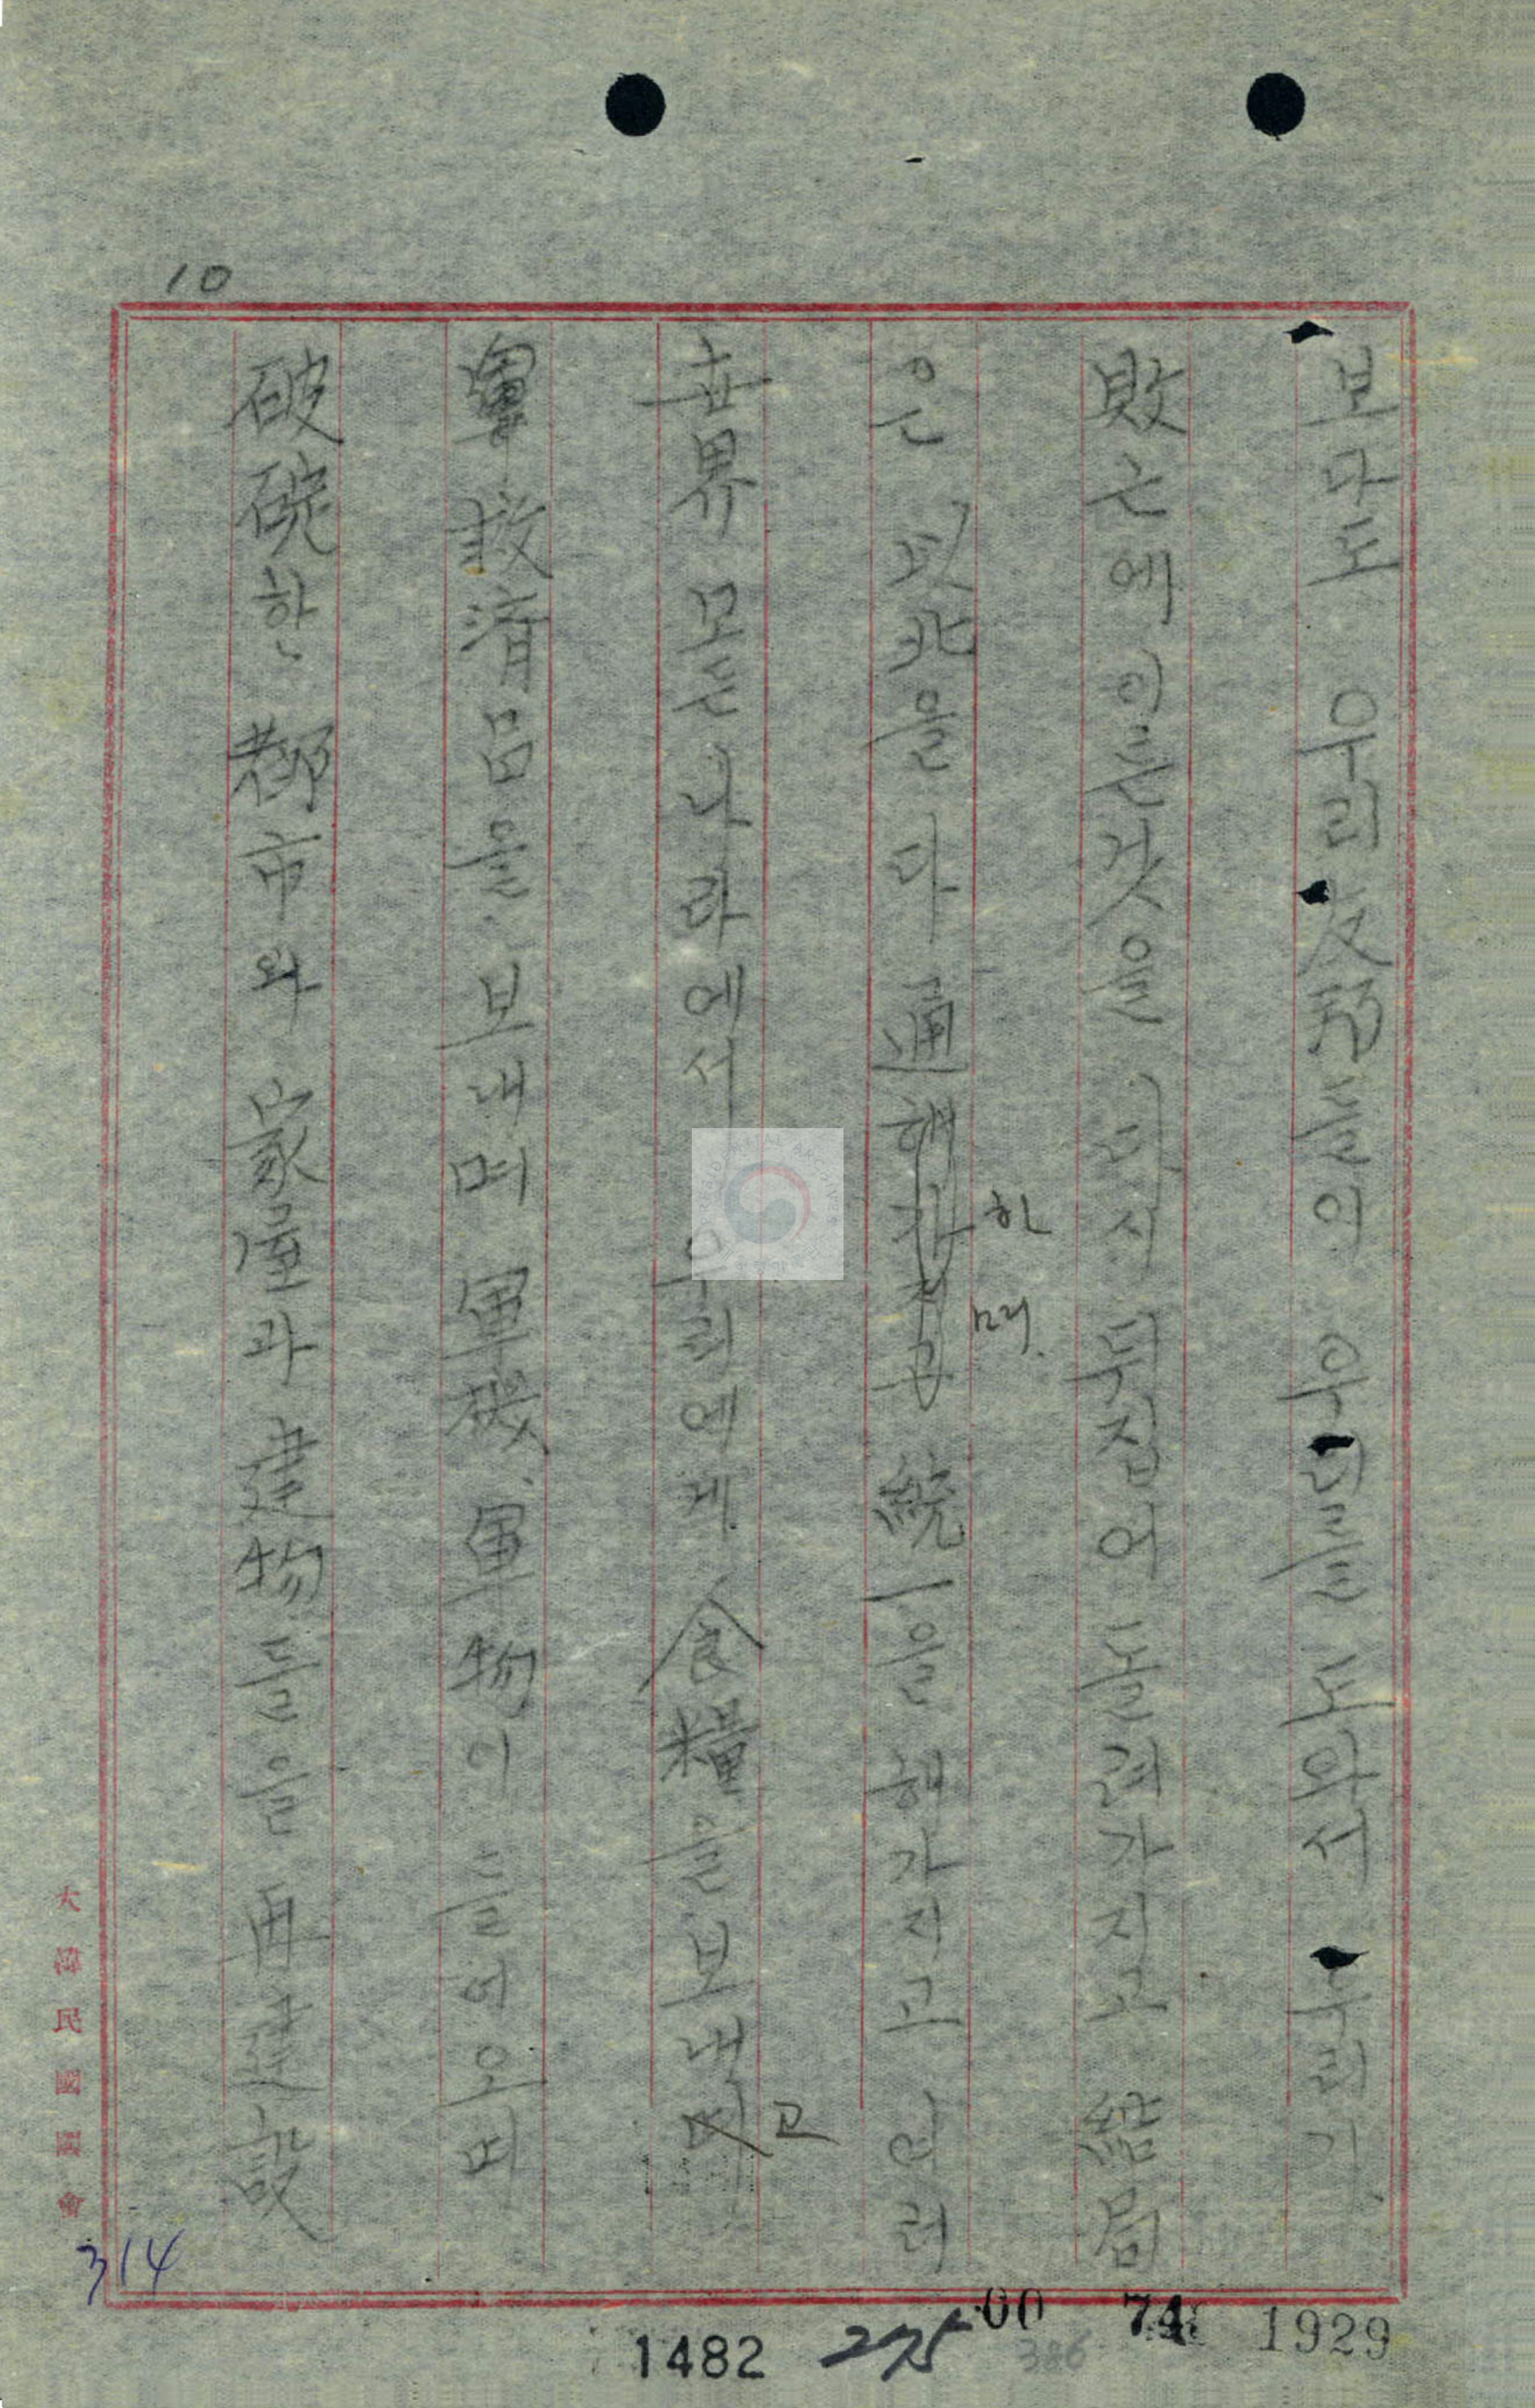 10
보다도 우리 友邦들의 우리를 도와서 우리가
敗근에 이른것을 다시 뒤집어 돌려가지고 結局
은 以北을 다 通하며 統一을 해가지고 여러
世界 모든 나라에서 우리에게 食糧을 보내고
救濟品을 보내며 軍機 軍物이 들어오며
破碇한 都市와 家屋과 建物들을 再建設
大韓民國國會
314
1482 275 00 74 1929
386